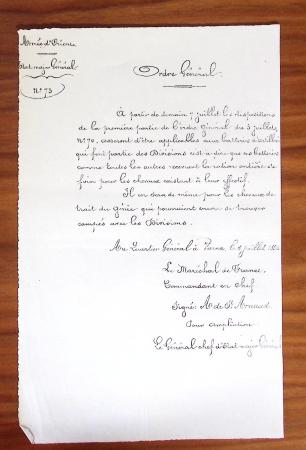 Armée d'Orient
Etat-major Général
N° 73
Ordre Général.
À partir de demain 7 juillet les dispositions
de la première partie de l'ordre général du 5 juillet,
N° 70, cesseront d'être applicables aux batteries d'artillerie
qui font partie des Divisions c'est-à-dire que ces batteries
comme toutes les autres recevront la ration entière de
foin pour les chevaux existant à leur effectif.
Il en sera de même pour les chevaux de
trait du Génie qui pourraient encore se trouver
campés avec les Divisions.
Au Quartier Général à Varna, le juillet
Le Maréchal de France,
Commandant en chef
Signé: A. de St Arnaud.
Pour ampliation
Le Général chef d'Etat-major Général